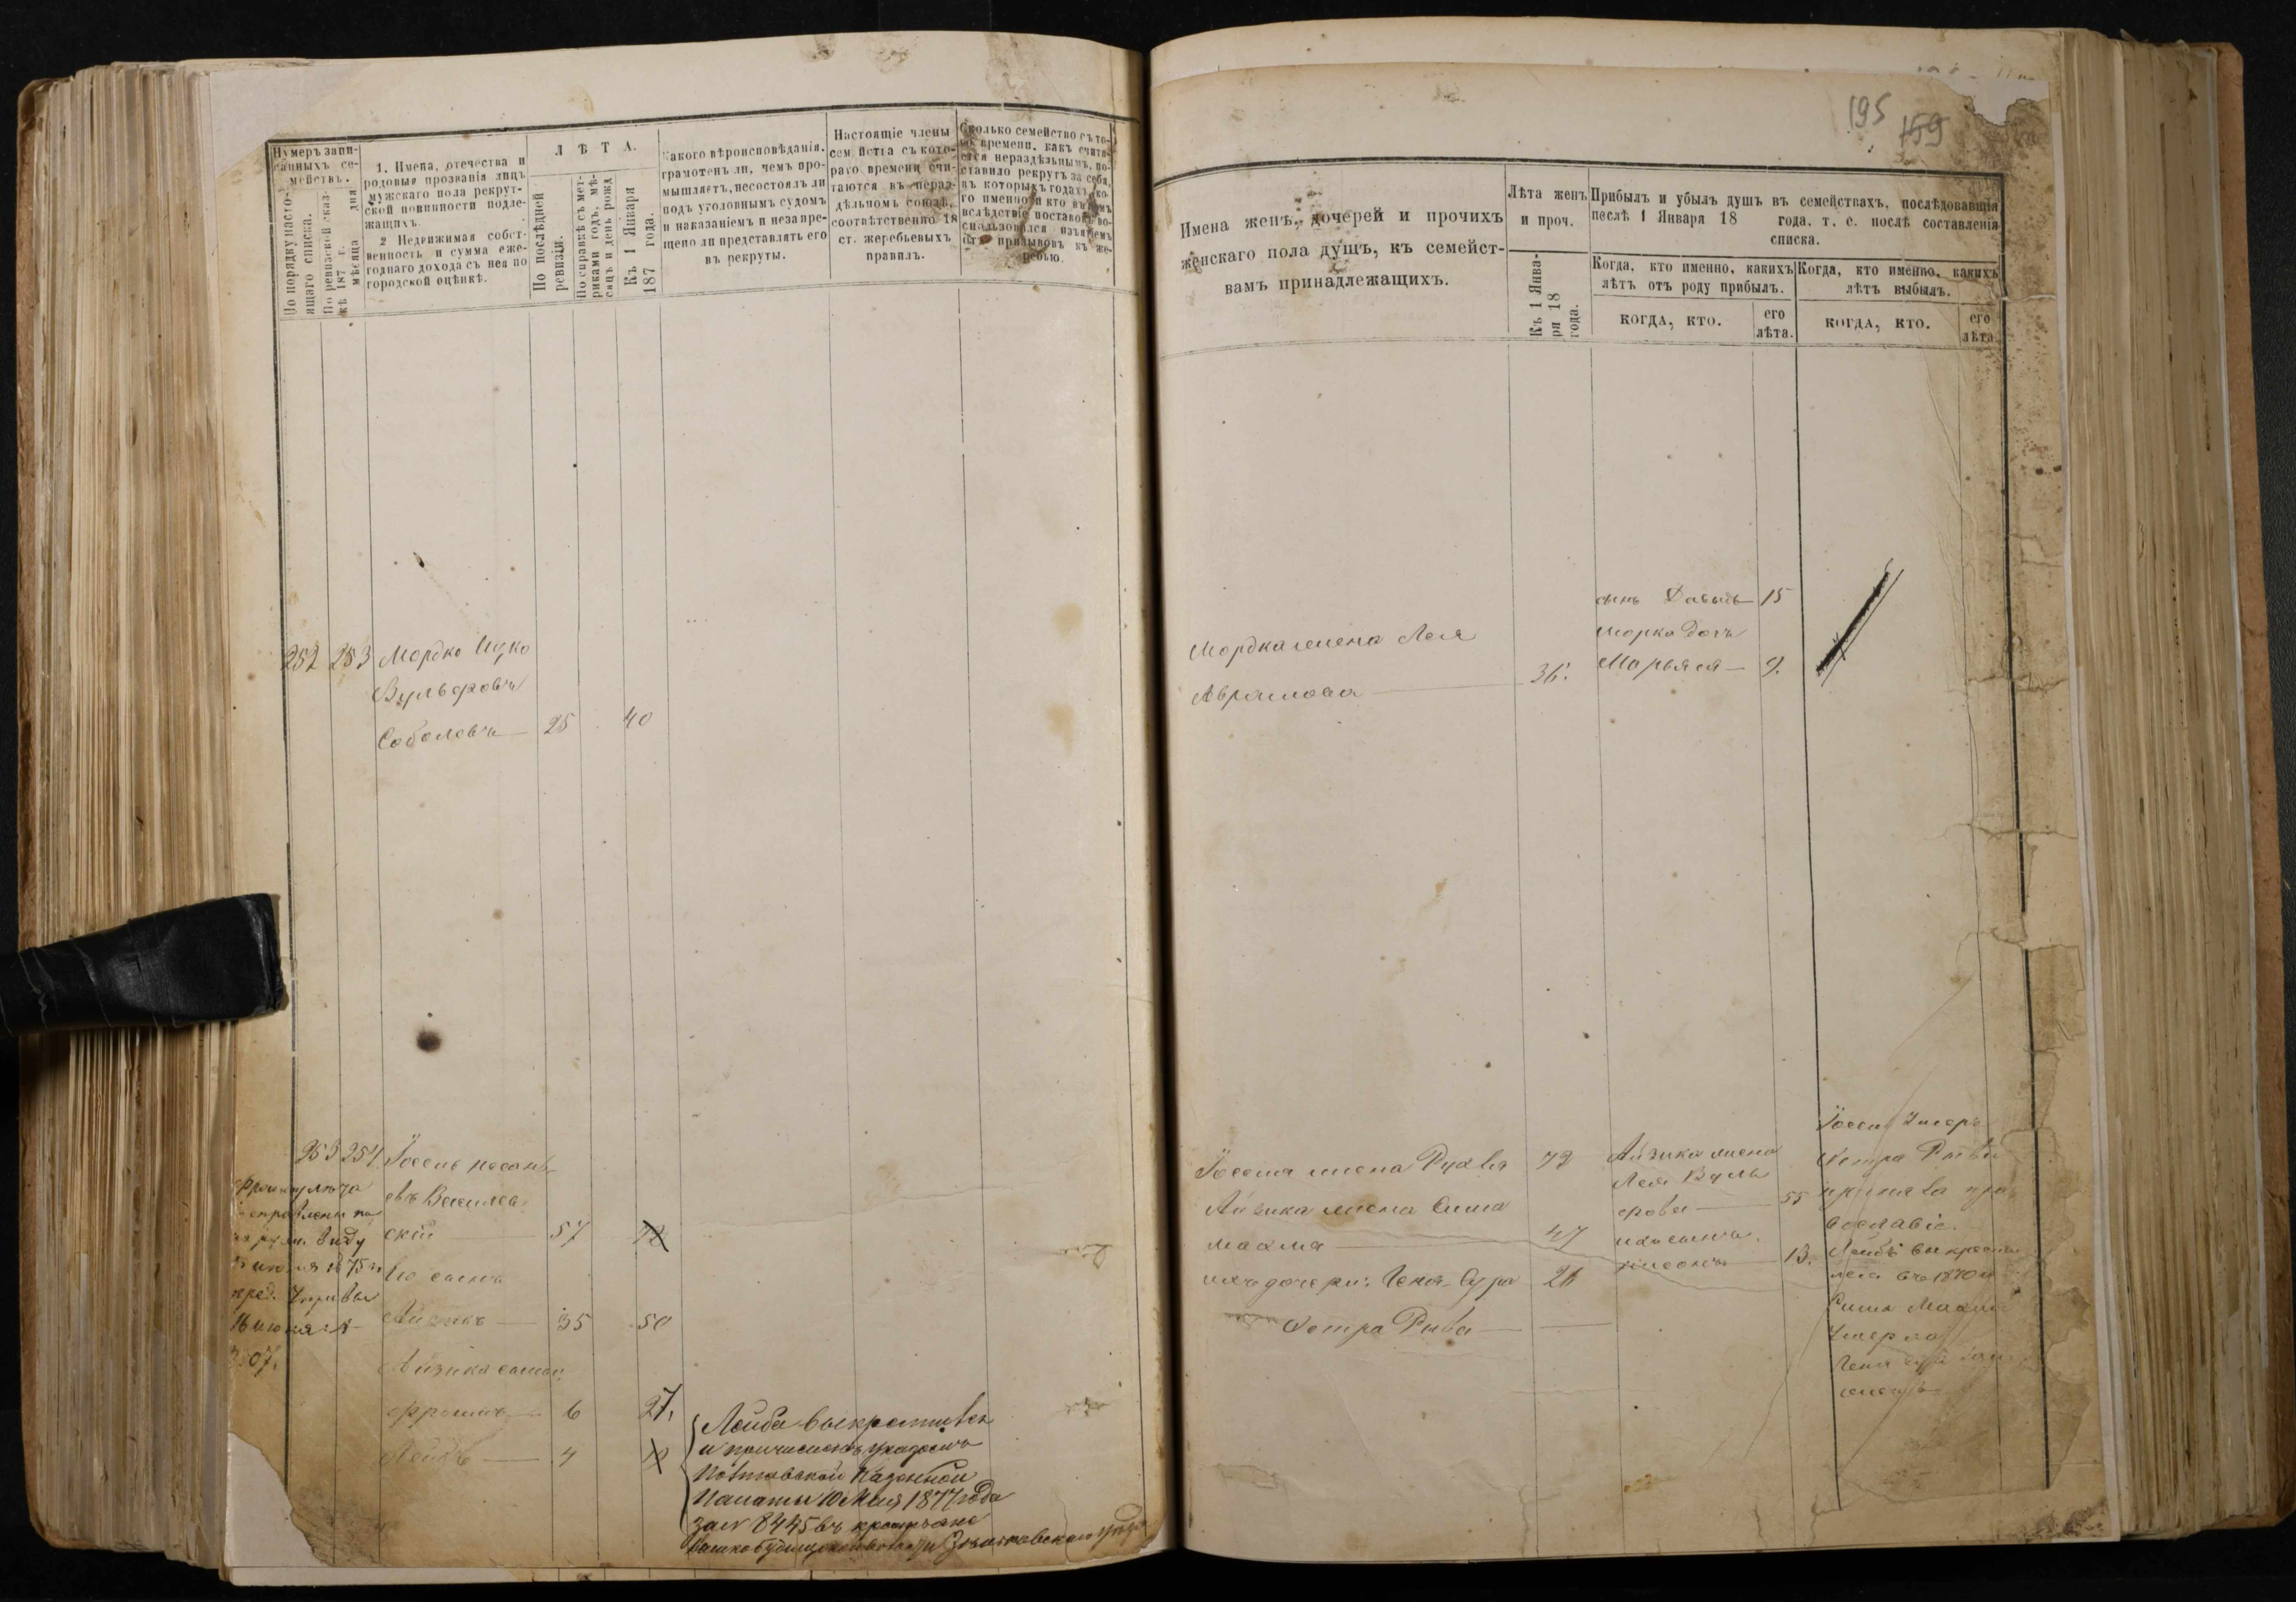 Нумеръ запи-
санныхъ се-
мействъ.
По порядку насто-
ящаго списка.
По ревизской сказ-
кѣ 187 г.
мѣсяца дня
1. Имена, отечества и
родовыя прозванія лицъ
мужскаго пола рекрут-
ской повинности подле-
жащихъ.
2 Недвижимая собст-
венность и сумма еже-
годнаго дохода съ нея по
городской оцѣнкѣ.
Л Ѣ Т А.
По послѣдней
ревизіи.
По справкѣ съ мет-
риками годъ, мѣ-
сяцъ и день рожд
Къ 1 Января
187 года.
Какого вѣроисповѣданія,
грамотенъ ли, чемъ про-
мышляетъ, несостоялъ ли
подъ уголовнымъ судомъ
и наказаніемъ и незапре-
щено ли представлять его
въ рекруты.
Настоящіе члены
семейства съ кото-
раго времени счи-
таются въ нераз-
дѣльномъ союзѣ,
соотвѣтственно 18
ст. жеребьевыхъ
правилъ.
Сколько семейство съ то-
го времени, какъ счита-
ется нераздѣльнымъ, по-
ставило рекрутъ за себя,
въ которыхъ годахъ, ко-
го именно и кто въ немъ
вслѣдствіе поставки во-
спользовался изъятіемъ
отъ призывовъ къ же-
ребью.
252 253 Мордко Ицко
Вульфовъ
Соболевъ 25 40
253 254 Іосель
евъ Василев-
скій 57 72
Его сынъ
Айзикъ 35 50
Айзика сынъ:
Фроимъ 6 21,
Лейбъ 4 19
16 июня
Лейба выкрестився
и причисленъ указомъ
Полтавской Казенной
Палаты 10 Мая 1877 года
за № 8445 въ крестьяне
Зеньковскаго уѣзда
195
159
Имена женъ, дочерей и прочихъ
женскаго пола душъ, къ семейст-
вамъ принадлежащихъ.
Лѣта женъ
и проч.
Къ 1 Янва-
ря 18
года.
Прибылъ и убылъ душъ въ семействахъ, послѣдовавшія
песлѣ 1 Января 18 года, т. е. послѣ составленія
списка.
Когда, кто именно, какихъ
лѣтъ отъ роду прибылъ.
Когда, кто именно, какихъ
лѣтъ выбылъ.
когда, кто.
его
лѣта.
когда, кто.
его
лѣта.
Мордка жена Лея
Аврамова 36.
сынъ Давыдъ 15
дочь
Марьяся 9.
Іоселя жена Рухля 72
Айзика жена Сима
Махля 47
ихъ дочери: Геня-Сура 21
Эстра Рива
Айзика жена
Лея Вуль
фова 55
ихъ сынъ
13.
Іосель умеръ
Эстра Рива
приняла пра-
вославіе.
Лейбъ выкрести-
лся въ 1870 г.
Сима Махля
умерла